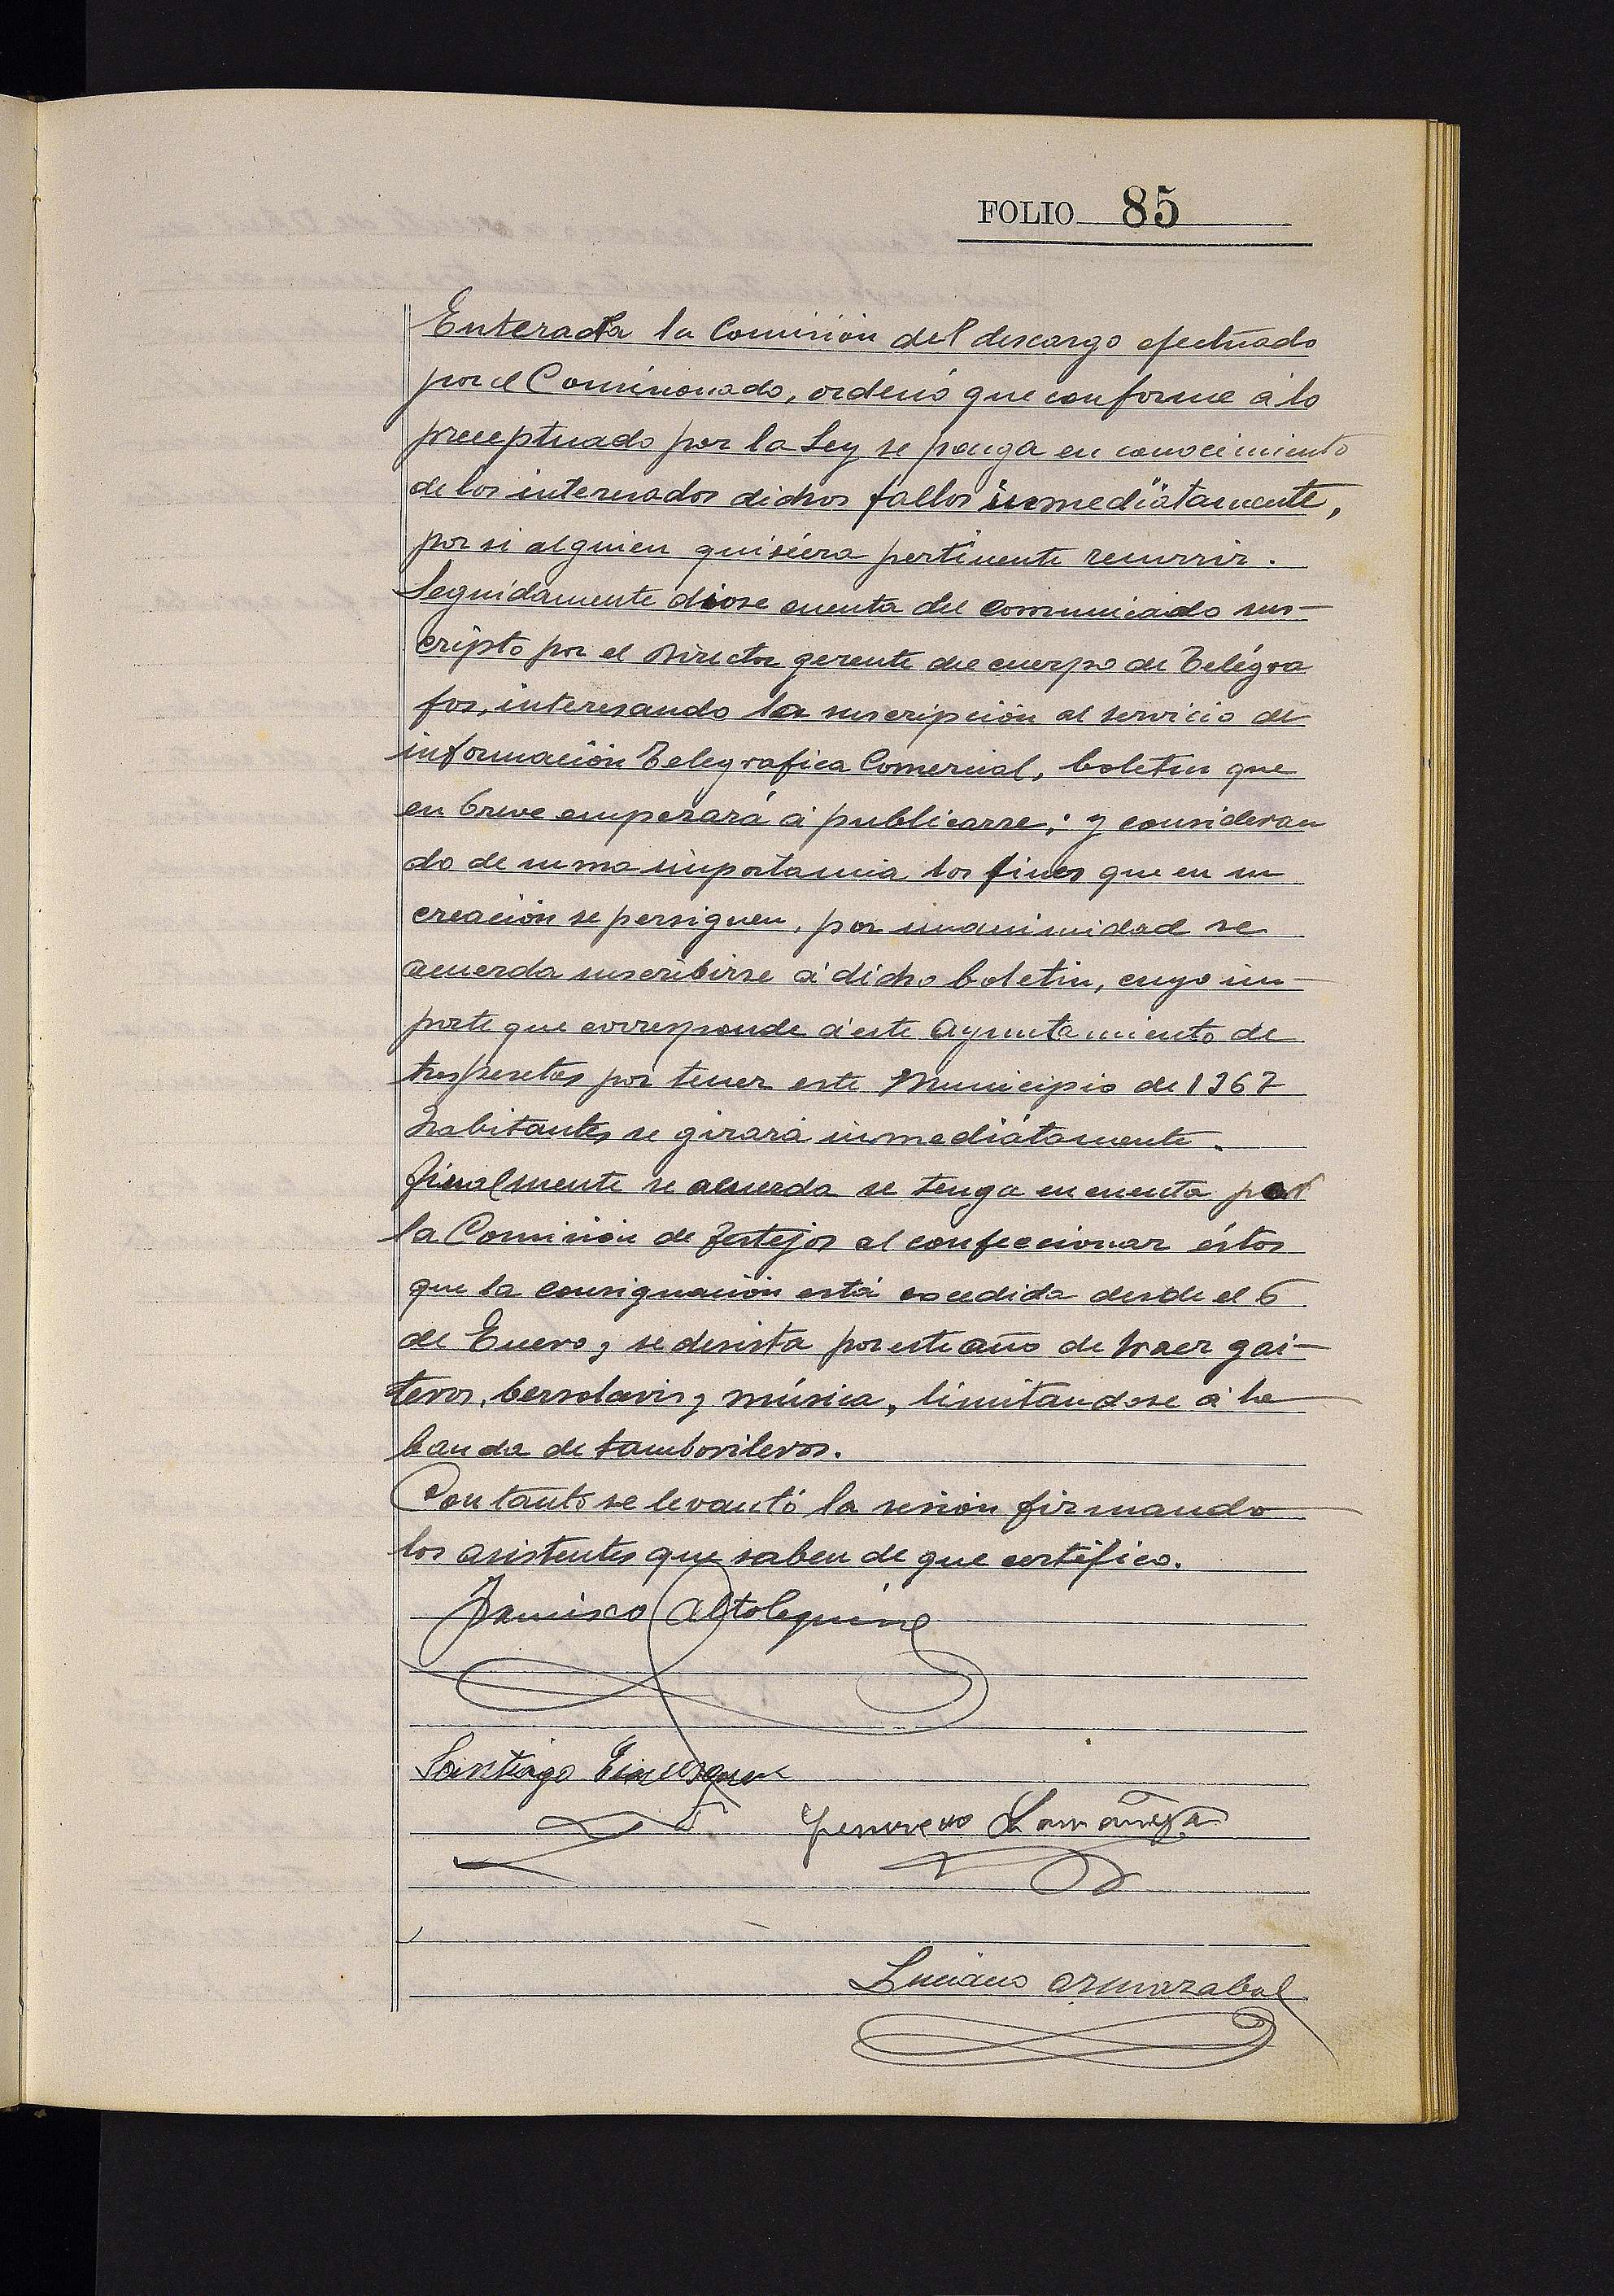 FOLIO 85
Enterada la Comisión del descargo efectuado
por el Comisionado, ordenó que conforme á lo
preceptuado por la Ley se ponga en conocimiento
de los interesados dichos fallos inmediatamente,
por si alguien quisiera pertinente recurrir.
Seguidamente dióse cuenta del comunicado sus-
cripto por el Director gerente del cuerpo de Telégra
fos, interesando la suscripción al servicio de
información Telegrafica Comercial, boletin que
en breve empezará á publicarse; y consideran
do de suma importancia los fines que en su
creación se persiguen, por unanimidad se
acuerda suscribirse á dicho boletin, cuyo im-
porte que corresponde á este Ayuntamiento de
tres pesetas por tener este Municipio de 1367
habitantes se girará inmediatamente.
Finalmente se acuerda se tenga en cuenta por
la Comisión de Festejos al confeccionar éstos
que la consignación está excedida desde el 6
de Enero, se desista por este año de traer gai-
teros, bersolaris y música, limitandose á la
banda de tamborileros.
Con tanto se levantó la sesión firmando
los asistentes que saben de que certifico.
Francisco Altoleguirre
Santiago
Luciano Ormazabal